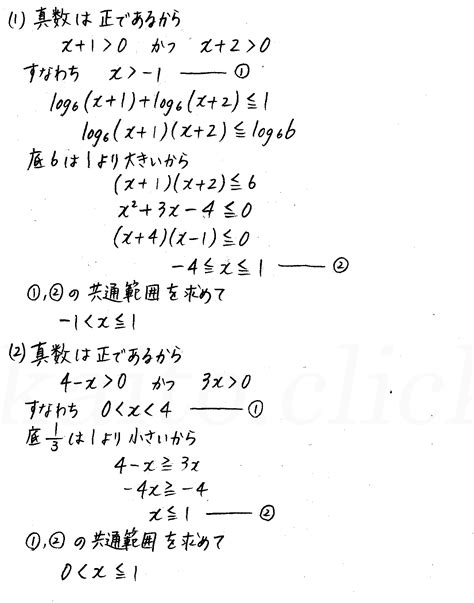 (1) 真数は正であるから
x+1>0 かつ x+2>0
すなわち x>-1 ―― ①
log₆(x+1)+log₆(x+2)≦1
log₆(x+1)(x+2)≦log₆6
底6は1より大きいから
(x+1)(x+2)≦6
x²+3x-4≦0
(x+4)(x-1)≦0
-4≦x≦1 ―― ②
①,②の共通範囲を求めて
-1<x≦1
(2) 真数は正であるから
4-x>0 かつ 3x>0
すなわち 0<x<4 ―― ①
底1/3は1より小さいから
4-x≧3x
-4x≧-4
x≦1 ―― ②
①,②の共通範囲を求めて
0<x≦1